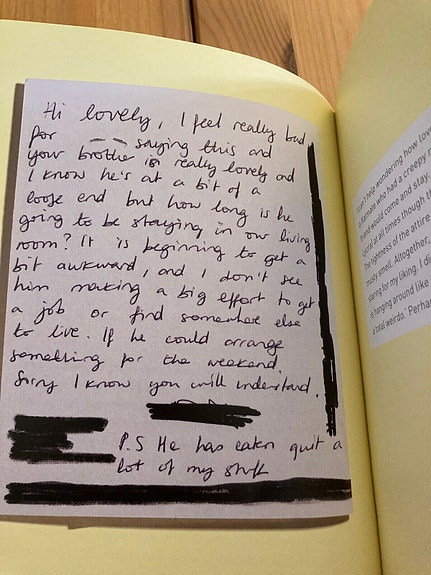 Hi lovely, I feel really bad
for saying this and
your brother is really lovely and
I know he's at a bit of a
loose end but how long is he
going to be staying in our living
room? It is beginning to get a
bit awkward, and I don't see
him making a big effort to get
a job or find somewhere else
to live. If he could arrange
something for the weekend.
Sorry I know you will understand.
P.S He has eaten quit a
lot of my stuff
I can't help wondering how lov
a flatmate who had a creepy
friend would come and stay.
at all times though th
the tightness of the attire
musty smell. Altogether,
staring for my liking. I di
is hanging around like
a total weirdo.' Perha